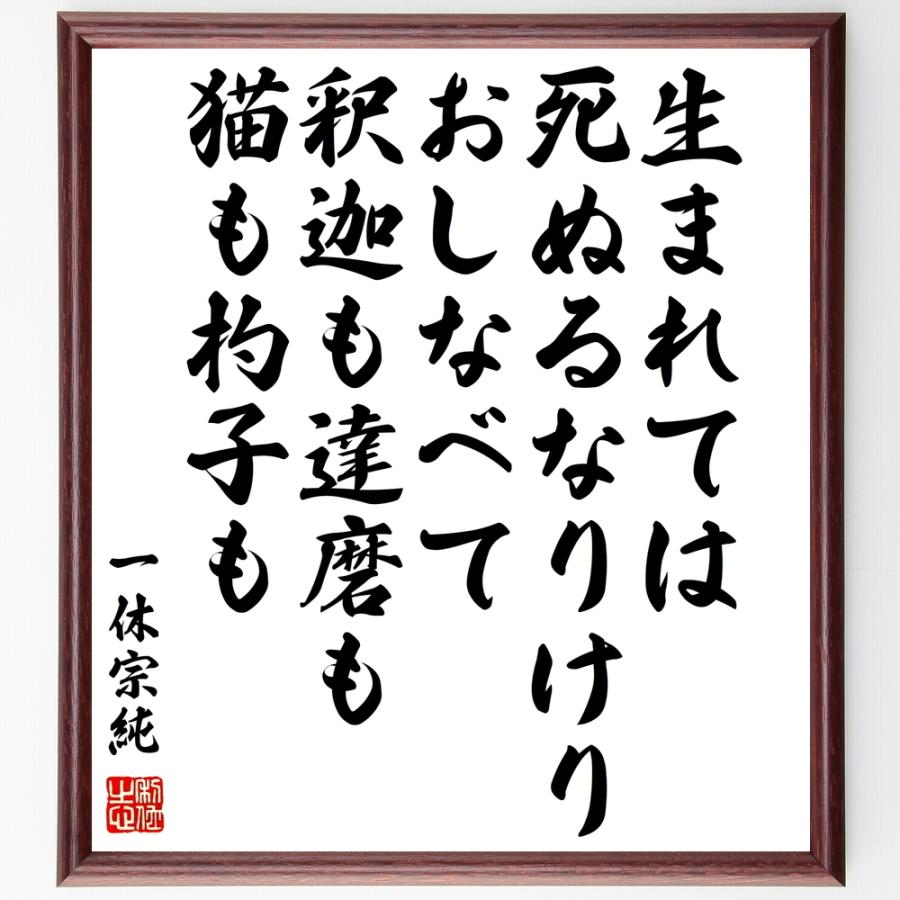 生まれては
死ぬるなりけり
おしなべて
釈迦も達磨も
猫も杓子も
一休宗純